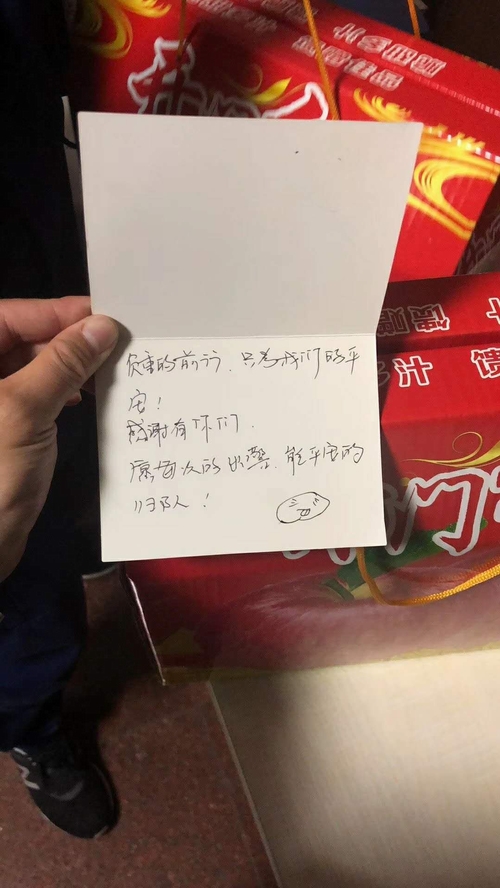 负重的前行,只为我们的平
安!
感谢有你们.
愿每次的出警,能平安的
归队!